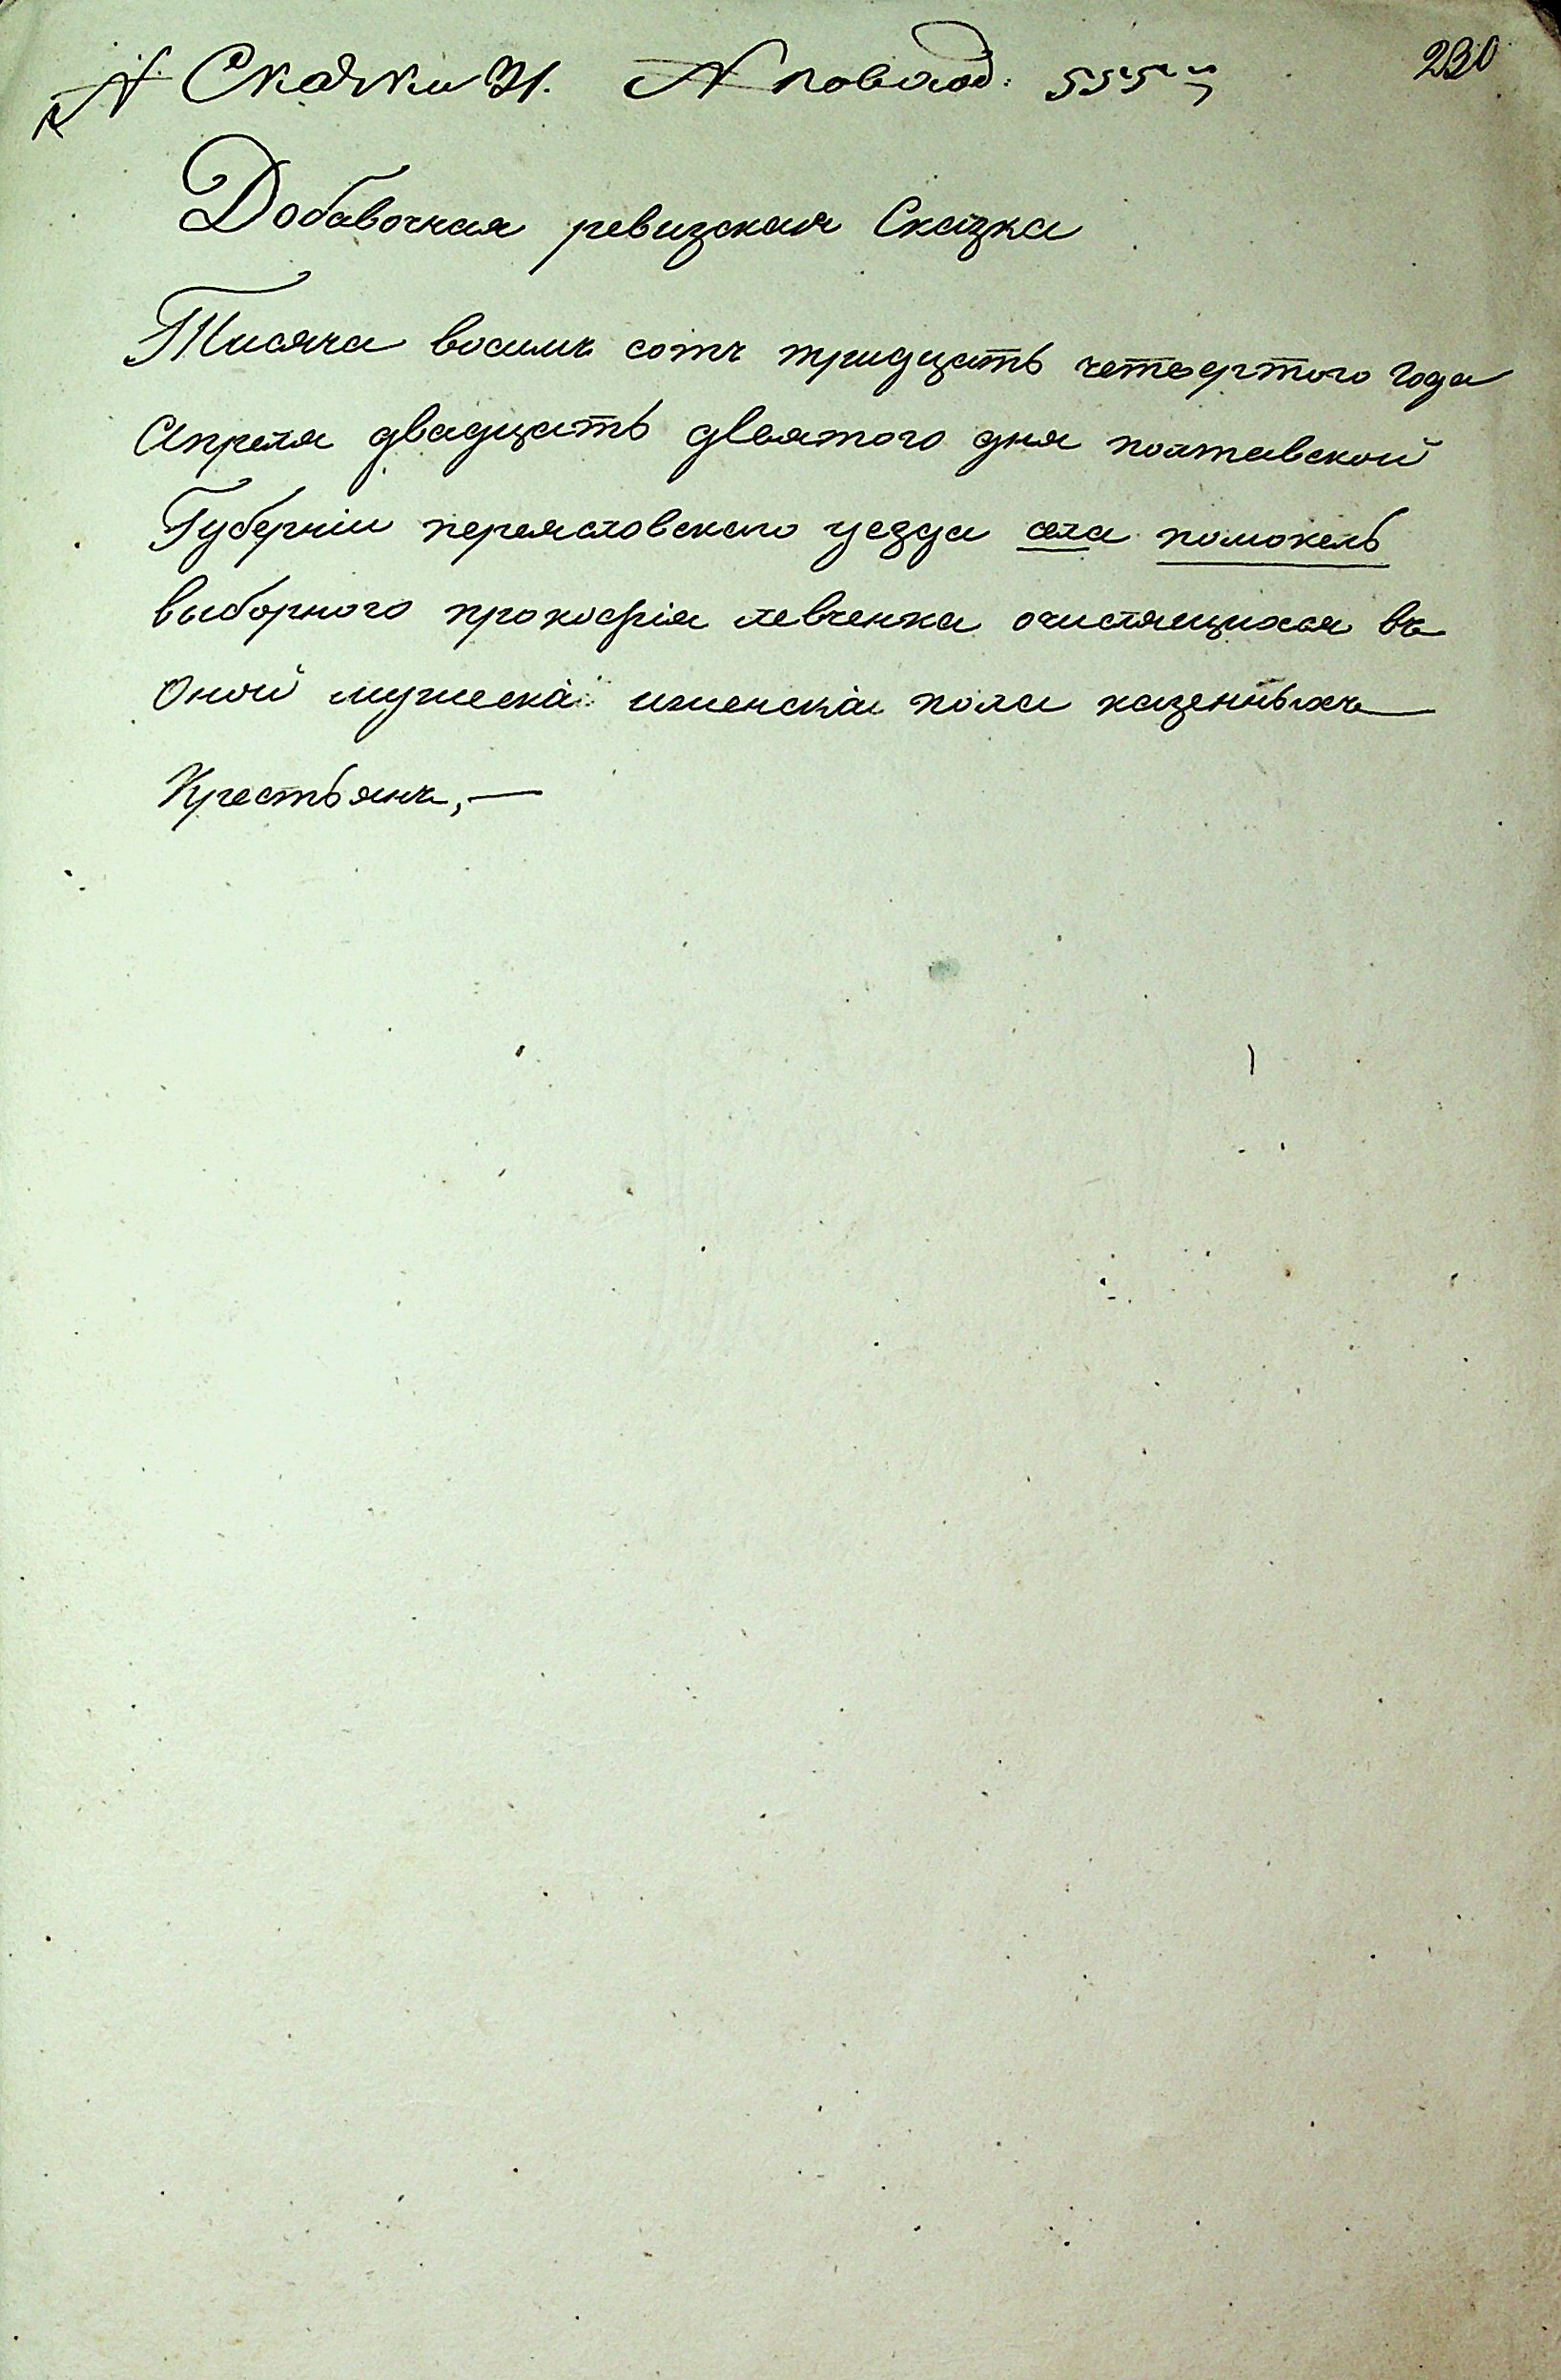 230
№ Скаски 31. № поваход: 555й
Добавочная ревизская Сказка
Тисяча восимъ сотъ тридцать четвертого года
Апреля двадцать девятого дня полтавской
Губернiи переясловского уезда села помокель
выборного прокофiя левченка очислящихся въ
Оной мужеска иженска пола казенныхъ
Крестьянъ,—